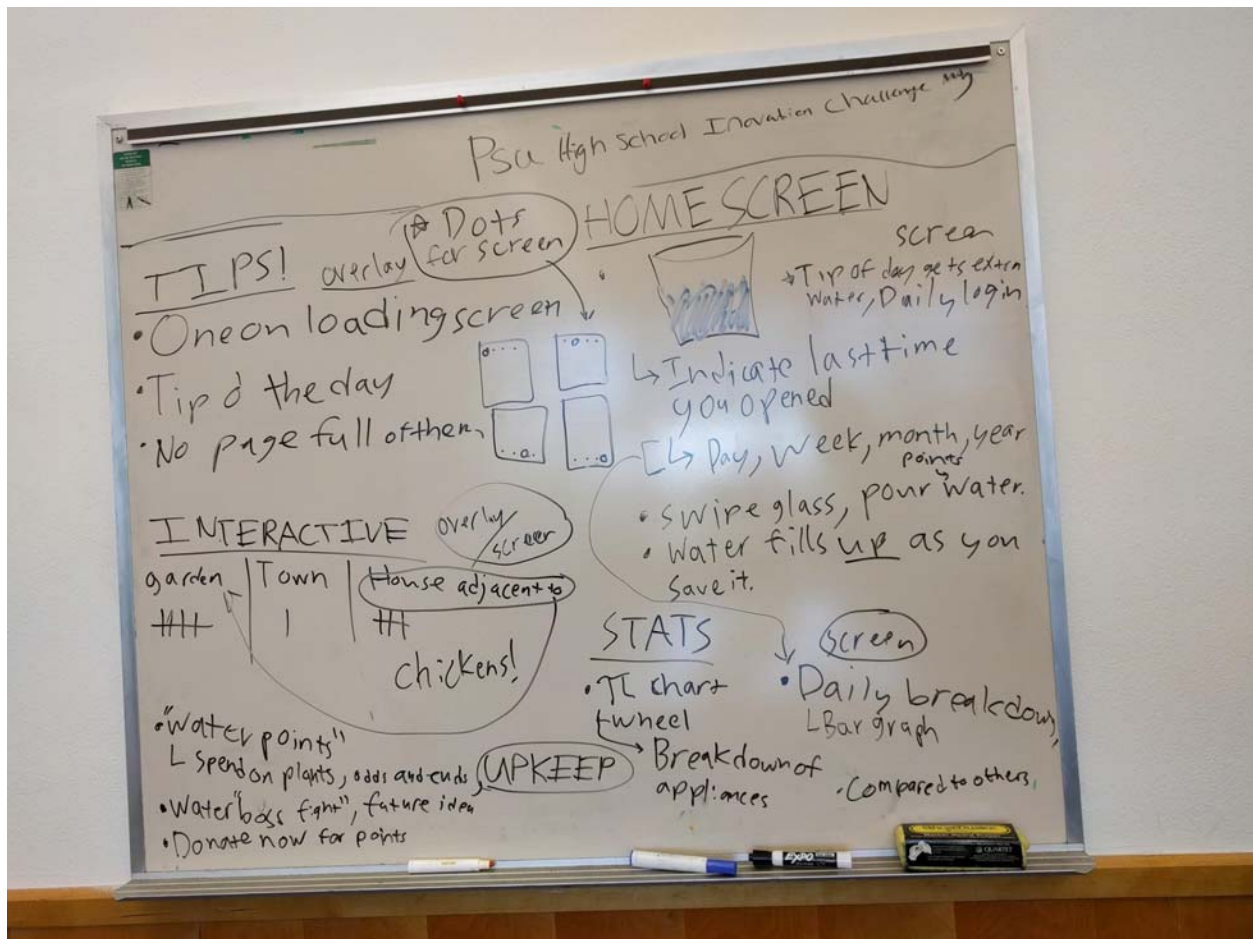 Psu High School Inovation Challenge
* Dots
for screen
TIPS!
overlay
• One on loading screen
• Tip o' the day
• No page full of them
HOME SCREEN
screen
* Tip of day gets extra
water, Daily login
↳ Indicate last time
you opened
[↳ Day, week, month, year
points
• swipe glass, pour water.
• Water fills up as you
save it.
INTERACTIVE
overlay/
screen
garden
Town
House adjacent to
chickens!
• "Water points"
↳ spend on plants, odds and ends, UPKEEP
• Water "boss fight", future idea
• Donate now for points
STATS
• π chart
wheel
→ Breakdown of
appliances
screen
• Daily breakdown,
↳ Bar graph
• Compared to others
EXPO
QUARTET